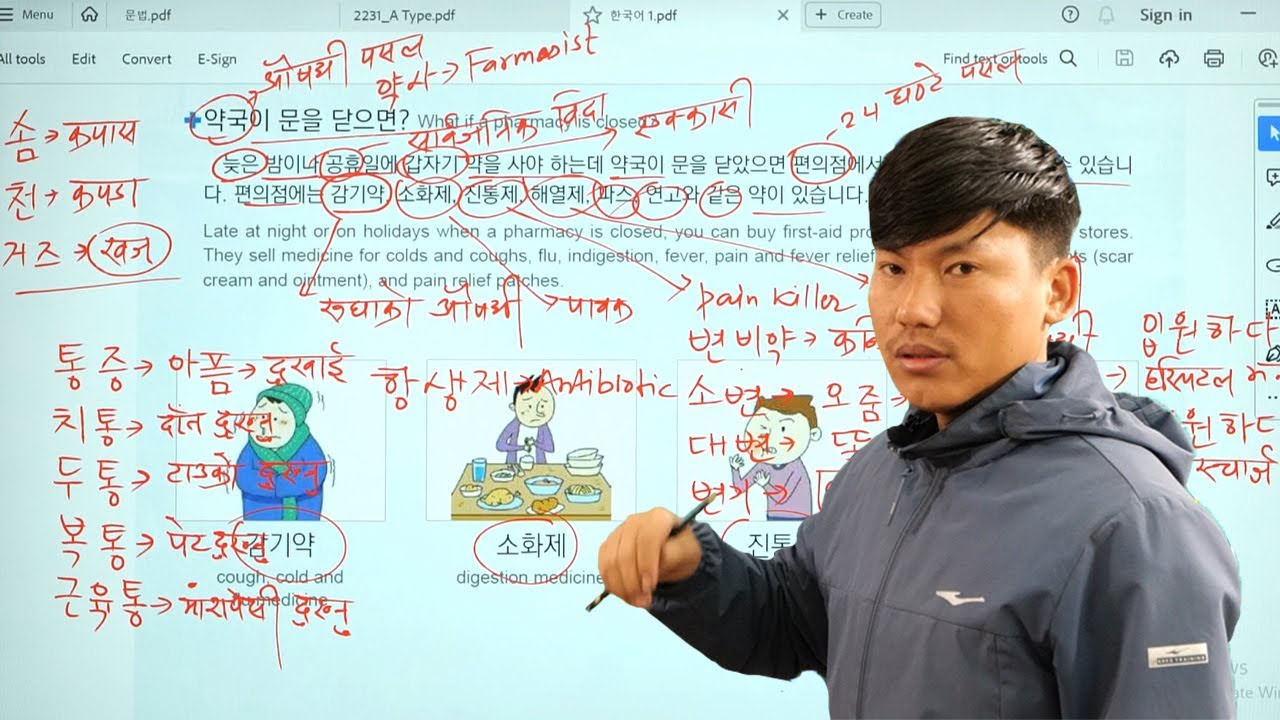 Menu
문법.pdf
2231_A Type.pdf
한국어 1.pdf
+ Create
Sign in
All tools
Edit
Convert
E-Sign
Find text or tools
औषधी पसल
약사→Farmasist
솜→कपास
천→कपडा
거즈→
약국이 문을 닫으면? What if a pharmacy is closed?
सार्वजनिक विदा
एक्कासी
24 घण्टे पसल
늦은 밤이나 공휴일에 갑자기 약을 사야 하는데 약국이 문을 닫았으면 편의점에서
있습니
다. 편의점에는 감기약, 소화제, 진통제, 해열제, 파스, 연고와 같은 약이 있습니다.
Late at night or on holidays when a pharmacy is closed, you can buy first-aid
stores.
They sell medicine for colds and coughs, flu, indigestion, fever, pain and fever relief
(scar
cream and ointment), and pain relief patches.
रुघाको औषधी
पाचक
pain killer
변비약→
입원하다
통증→아픔→दुखाई
항생제→Antibiotic
소변→오줌→
→हस्पिटल
치통→दाँत दुख्नु
대변→
원하다
두통→टाउको दुख्नु
변기→
복통→पेट दुख्नु
근육통→मांशपेशी दुख्नु
감기약
소화제
진통
cough, cold and
medicine
digestion medicine